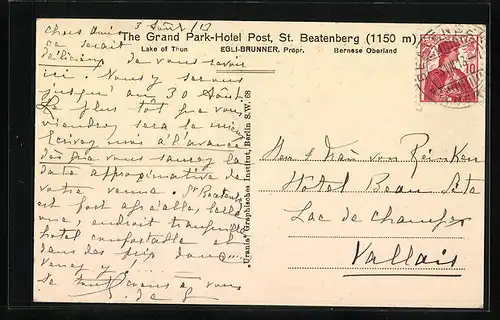 3 Août / 13
The Grand Park-Hotel Post, St. Beatenberg (1150 m)
Lake of Thun EGLI-BRUNNER, Propr. Bernese Oberland
Chers Amis
ce serait
délicieux de vous revoir
ici. Nous y serons
jusqu'au 30 Août
Le plus tôt que vous
viendrez sera le mieux
Ecrivez moi à l'avance
dès que vous saurez la
date approximative de
votre venue. St Beatenberg
est fort agréable, belle
vue, endroit tranquille
hotel confortable et
dans des prix doux
Venez y!...
"Urania" Graphisches Institut, Berlin S.W. 68
10
Herr & Frau von
Hotel Beau Site
Lac de Champex
Vallais